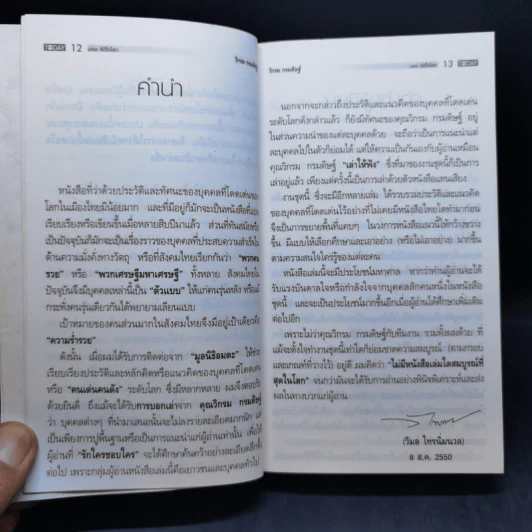 TODAY 12 มอง ซีอีโอโลก
วิกรม กรมดิษฐ์
คำนำ
หนังสือที่ว่าด้วยประวัติและทัศนะของบุคคลที่โดดเด่นของ
โลกในเมืองไทยมีน้อยมาก และที่มีอยู่ก็มักจะเป็นหนังสือที่แปล
เรียบเรียงหรือเขียนขึ้นเมื่อหลายสิบปีมาแล้ว ส่วนที่ทันสมัยหรือ
เป็นปัจจุบันก็มักจะเป็นเรื่องราวของบุคคลที่ประสบความสำเร็จใน
ด้านความมั่งคั่งทางวัตถุ หรือที่สังคมไทยเรียกกันว่า "พวกคน
รวย" หรือ "พวกเศรษฐีมหาเศรษฐี" ทั้งหลาย สังคมไทยใน
ปัจจุบันจึงมีบุคคลเหล่านี้เป็น "ตัวแบบ" ให้แก่คนรุ่นหลัง หรือแม้
กระทั่งคนรุ่นเดียวกันได้พยายามเลียนแบบ
เป้าหมายของคนส่วนมากในสังคมไทยจึงมีอยู่เป้าเดียวคือ
"ความร่ำรวย"
ดังนั้น เมื่อผมได้รับการติดต่อจาก "มูลนิธิอมตะ" ให้ช่วย
เรียบเรียงประวัติและหลักคิดหรือแนวคิดของบุคคลที่โดดเด่น
หรือ "คนเด่นคนดัง" ระดับโลก ซึ่งมีหลากหลาย ผมจึงตอบรับ
ด้วยยินดี ถึงแม้จะได้รับการบอกเล่าจาก คุณวิกรม กรมดิษฐ์
ว่า บุคคลต่างๆ ที่นำมาเสนอนั้นจะไม่ลงรายละเอียดมากนัก แต่
เป็นเพียงการปูพื้นฐานหรือเป็นการแนะนำแก่ผู้อ่านเท่านั้น เพื่อให้
ผู้อ่านที่ "รักใครชอบใคร" จะได้ศึกษาค้นคว้าอย่างละเอียดลึกซึ้ง
ต่อไป เพราะกลุ่มผู้อ่านหนังสือเล่มนี้คือเยาวชนและบุคคลทั่วไป
วิกรม กรมดิษฐ์
มอง ซีอีโอโลก 13 TODAY
นอกจากจะกล่าวถึงประวัติและแนวคิดของบุคคลที่โดดเด่น
ระดับโลกดังกล่าวแล้ว ก็ยังมีทัศนะของคุณวิกรม กรมดิษฐ์ อยู่
ในส่วนความนำของแต่ละบุคคลด้วย จะถือว่าเป็นการแนะนำแต่
ละบุคคลไปในตัวก็ย่อมได้ แต่ให้ความเป็นกันเองกับผู้อ่านเหมือน
คุณวิกรม กรมดิษฐ์ "เล่าให้ฟัง" ซึ่งที่มาของงานชุดนี้ก็เป็นการ
เล่าอยู่แล้ว เพียงแต่ครั้งนี้เป็นการเล่าด้วยตัวหนังสือแทนเสียง
งานชุดนี้ ซึ่งจะมีอีกหลายเล่ม ได้รวบรวมประวัติและแนวคิด
ของบุคคลที่โดดเด่นไว้อย่างที่ไม่เคยมีหนังสือไทยใดทำมาก่อน
จึงเป็นการขยายพื้นที่แคบๆ ในวงการหนังสือแนวนี้ให้กว้างขวาง
ขึ้น มีแบบให้เลือกศึกษาและเอาอย่าง (หรือไม่เอาอย่าง) มากขึ้น
ตามความสนใจใคร่รู้ของแต่ละคน
หนังสือเล่มนี้จะมีประโยชน์มหาศาล หากว่าท่านผู้อ่านจะได้
รับแรงบันดาลใจหรือกำลังใจจากบุคคลใดบุคคลหนึ่งในหนังสือ
ชุดนี้ และจะเป็นประโยชน์มากขึ้นอีกเมื่อผู้อ่านได้ศึกษาเพิ่มเติม
ต่อไปอีก
เพราะไม่ว่าคุณวิกรม กรมดิษฐ์กับทีมงาน รวมทั้งผมด้วย ที่
แม้จะตั้งใจทำงานชุดนี้เท่าใดก็ย่อมขาดความสมบูรณ์ (ตามกรอบ
และเกณฑ์ที่วางไว้) อยู่ดี ผมคิดว่า "ไม่มีหนังสือเล่มใดสมบูรณ์ที่
สุดในโลก" จนกว่ามันจะได้รับการอ่านอย่างพินิจพิเคราะห์และส่ง
ผลในทางบวกแก่ผู้อ่าน
(วิมล ไทรนิ่มนวล)
6 ส.ค. 2550